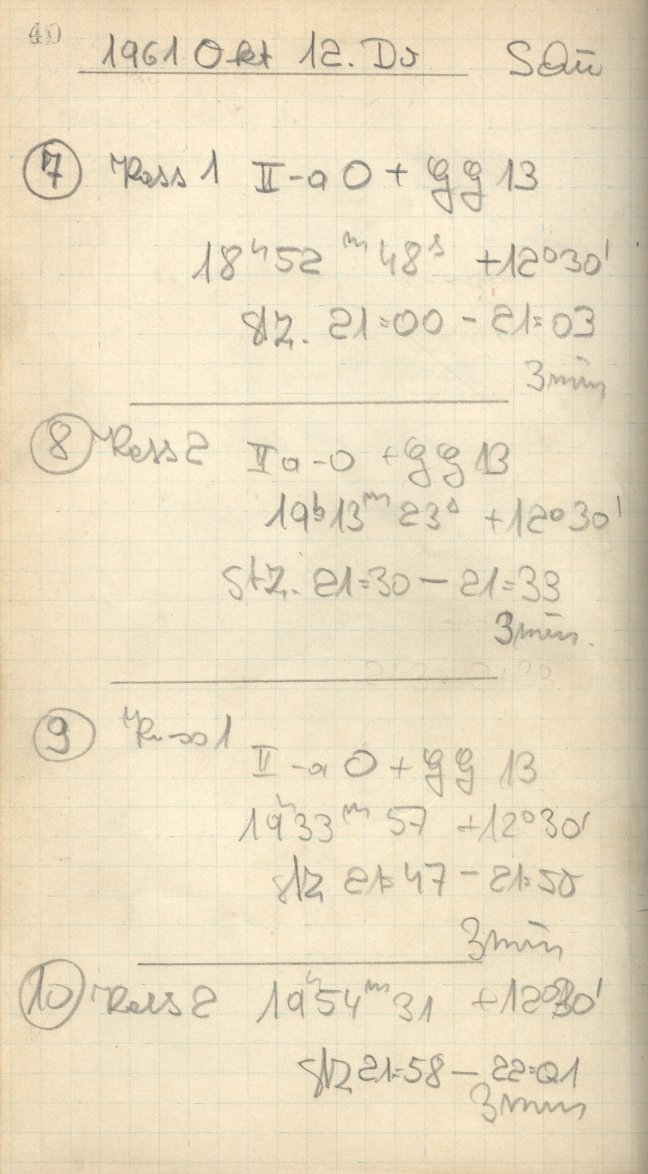 40
1961 Okt 12. Do
7 Kass 1 II-a O + GG 13
18h 52m 48s +12°30'
StZ. 21:00 - 21:03
3 min
8 Kass 2 II a-O + GG 13
19h 13m 23s +12°30'
StZ. 21:30 - 21:33
3 min.
9 Kass 1
II - a O + GG 13
19h 33m 57 +12°30'
StZ 21:47 - 21:50
3 min
10 Kass 2 19h 54m 31 +12°30'
StZ 21:58 - 22:01
3 min